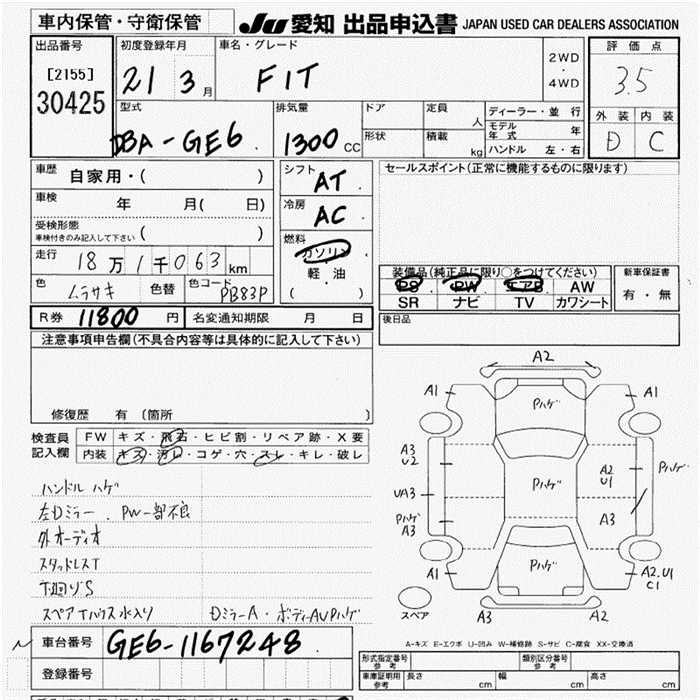 車内保管・守衛保管
JU 愛知 出品申込書 JAPAN USED CAR DEALERS ASSOCIATION
出品番号
[2155]
30425
初度登録年月
21 3月
車名・グレード
FIT
2WD
・
4WD
評価点
3.5
外装 内装
D C
型式
DBA-GE6
排気量
1300 CC
ドア
定員 人
形状
積載 kg
ディーラー・並行
モデル年式 年
ハンドル 左・右
車歴
自家用・( )
車検
年 月( 日)
受検形態
車検付きのみ記入して下さい ( )
走行
18万1千063km
色
ムラサキ
色替
色コード
PB83P
シフト
AT
冷房
AC
燃料
ガソリン
軽・油
( )
セールスポイント(正常に機能するものに限ります)
装備品(純正品に限り○をつけてください)
PS PW エアB AW
SR ナビ TV カワシート
新車保証書
有・無
R券 11800 円
名変通知期限 月 日
後日品
注意事項申告欄(不具合内容等は具体的に記入して下さい)
修復歴 有〔箇所 〕
検査員記入欄
FW キズ・飛石・ヒビ割・リペア跡・X要
内装 キズ・汚レ・コゲ・穴・スレ・キレ・破レ
ハンドルハゲ
左Dミラー.PW一部不良
外オーディオ
スタッドレスT
下廻りS
スペアTハウス水入り
Dミラー A・ボディーAUPハゲ
A2
A1
Pハゲ
A1
A3
U2
Pハゲ
A2
U1
Pハゲ
UA3
Pハゲ
A3
A3
Pハゲ
A1
A2.U1
C1
スペア
A3
A2
A-キズ E-エクボ U-凹み W-補修跡 S-サビ C-腐食 XX-交換済
車台番号
GE6-1167248
登録番号
形式指定番号
参考
類別区分番号
参考
車庫証明用
参考
長さ cm
幅 cm
高さ cm